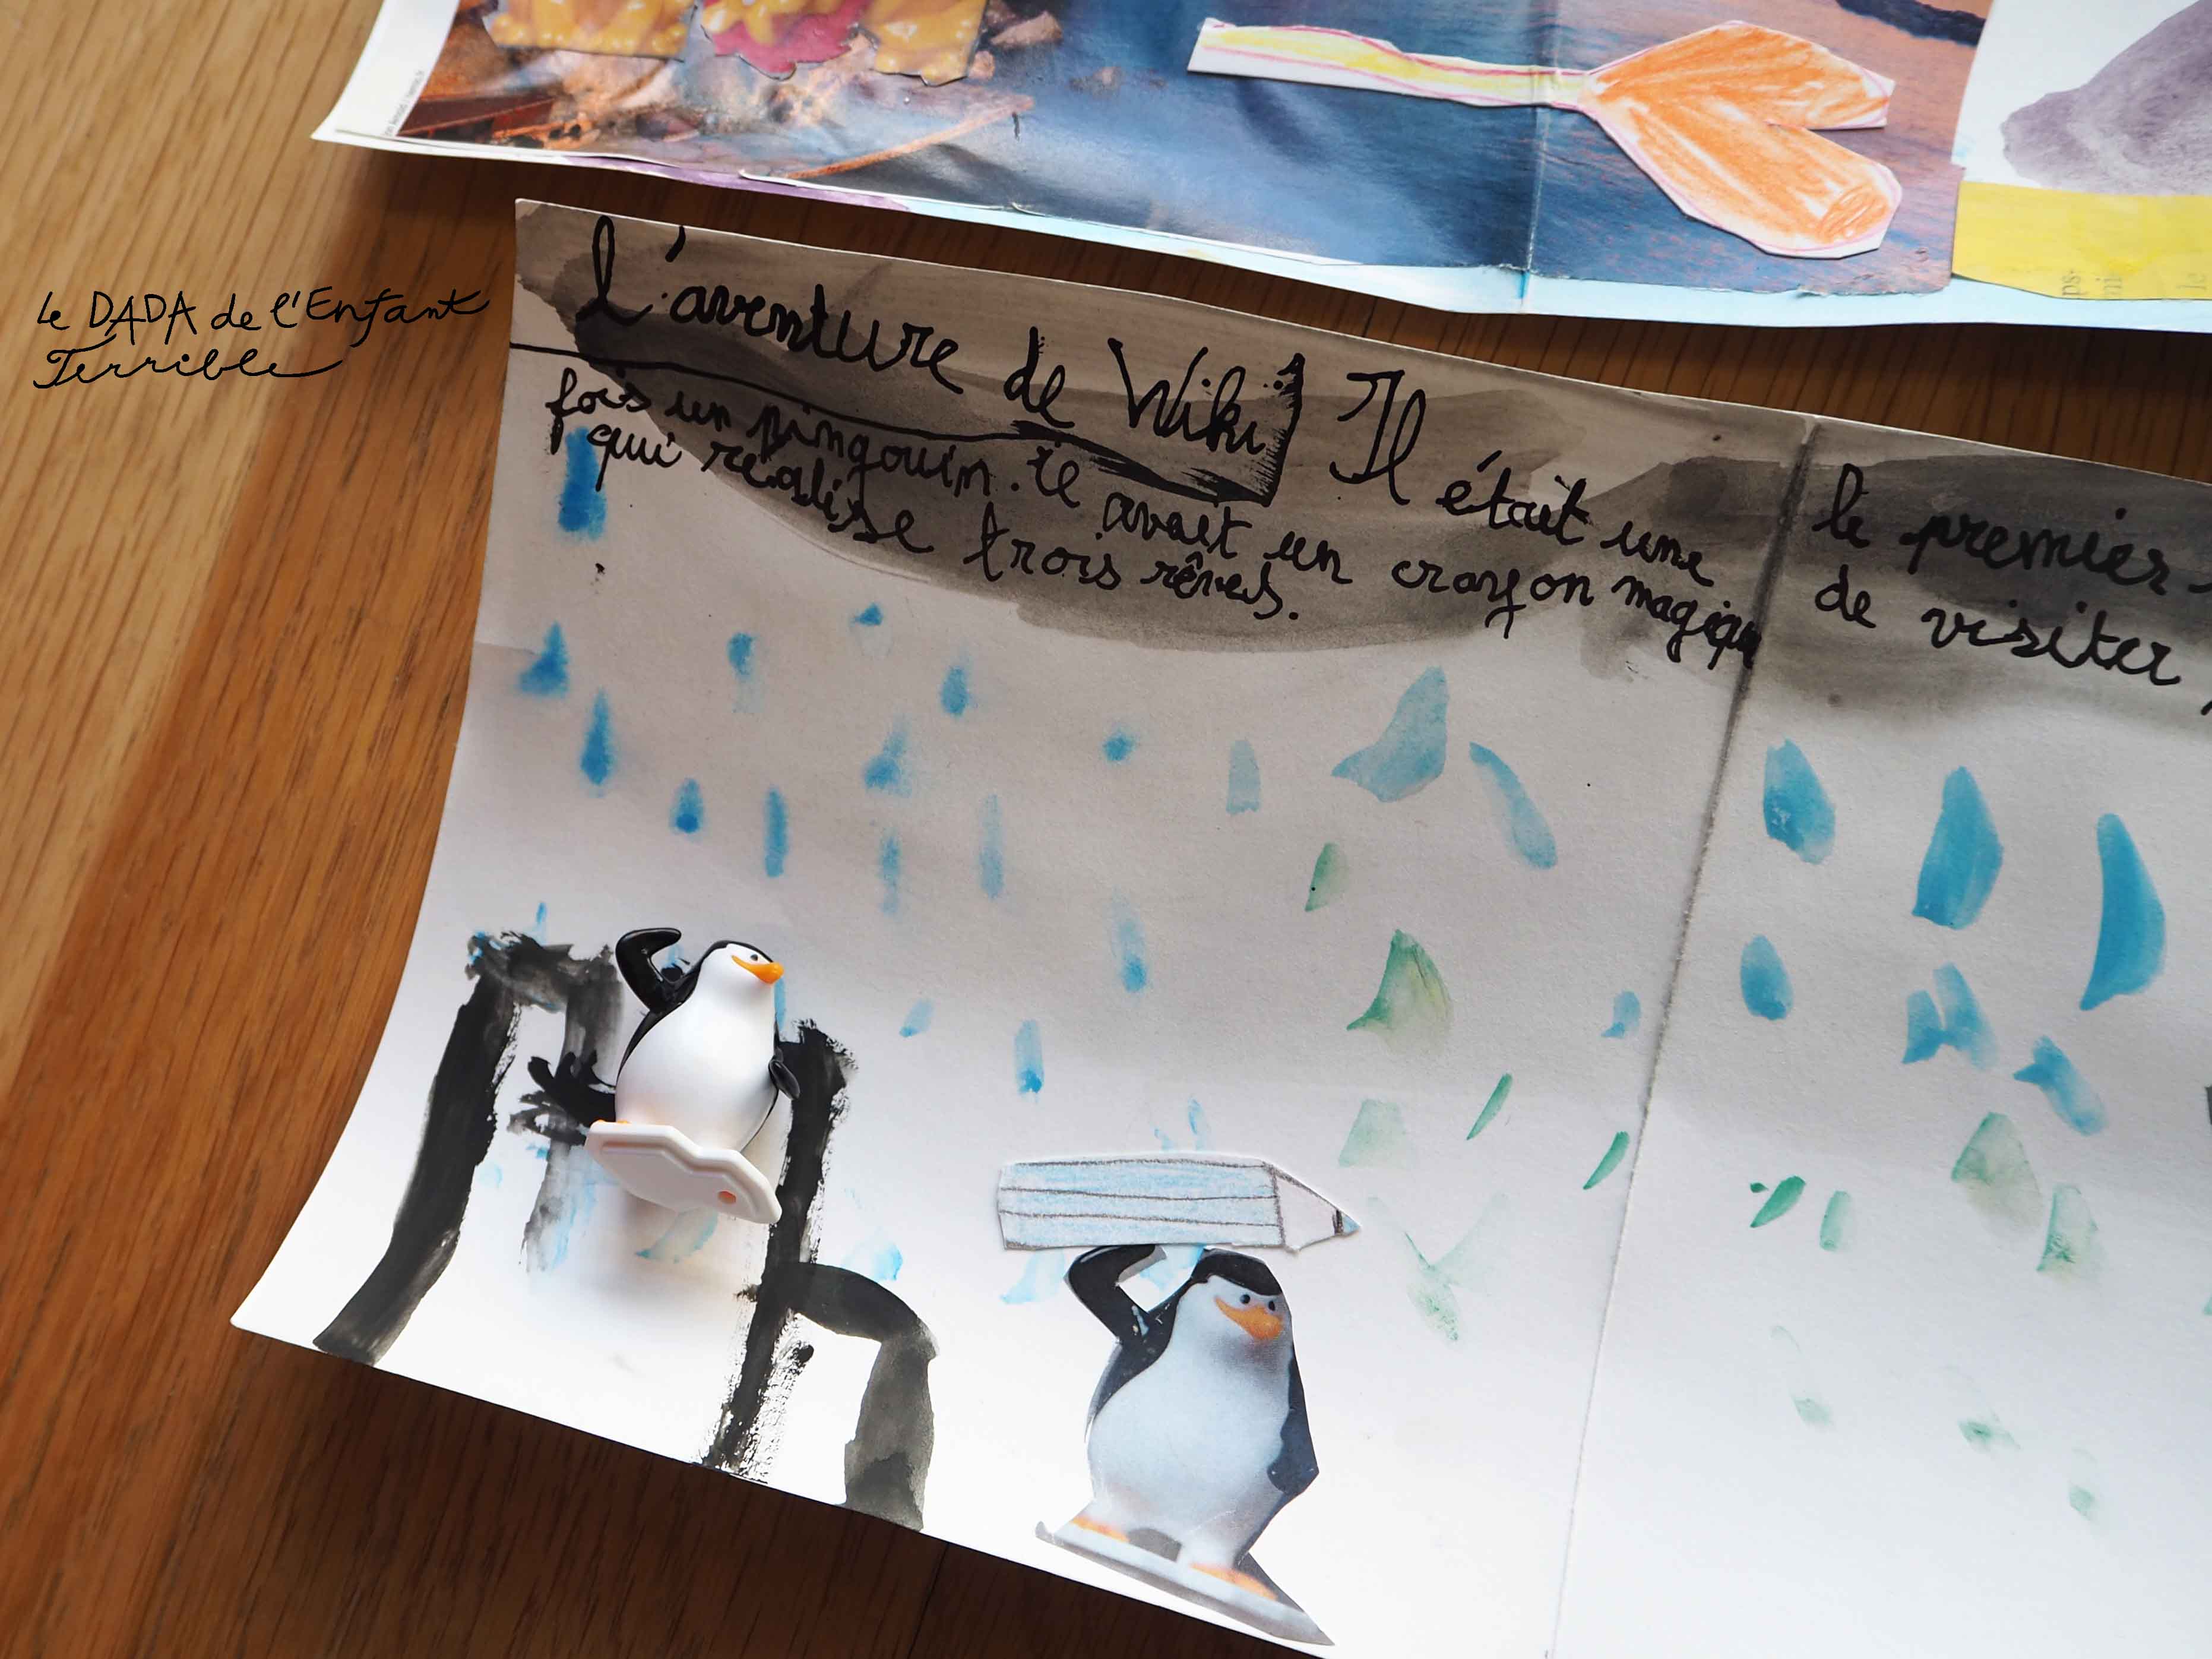 le DADA de l'Enfant
Terrible
l'aventure de Wiki Il était une
fois un pingouin. Il avait un crayon magique
qui réalise trois rêves.
le premier
de visiter